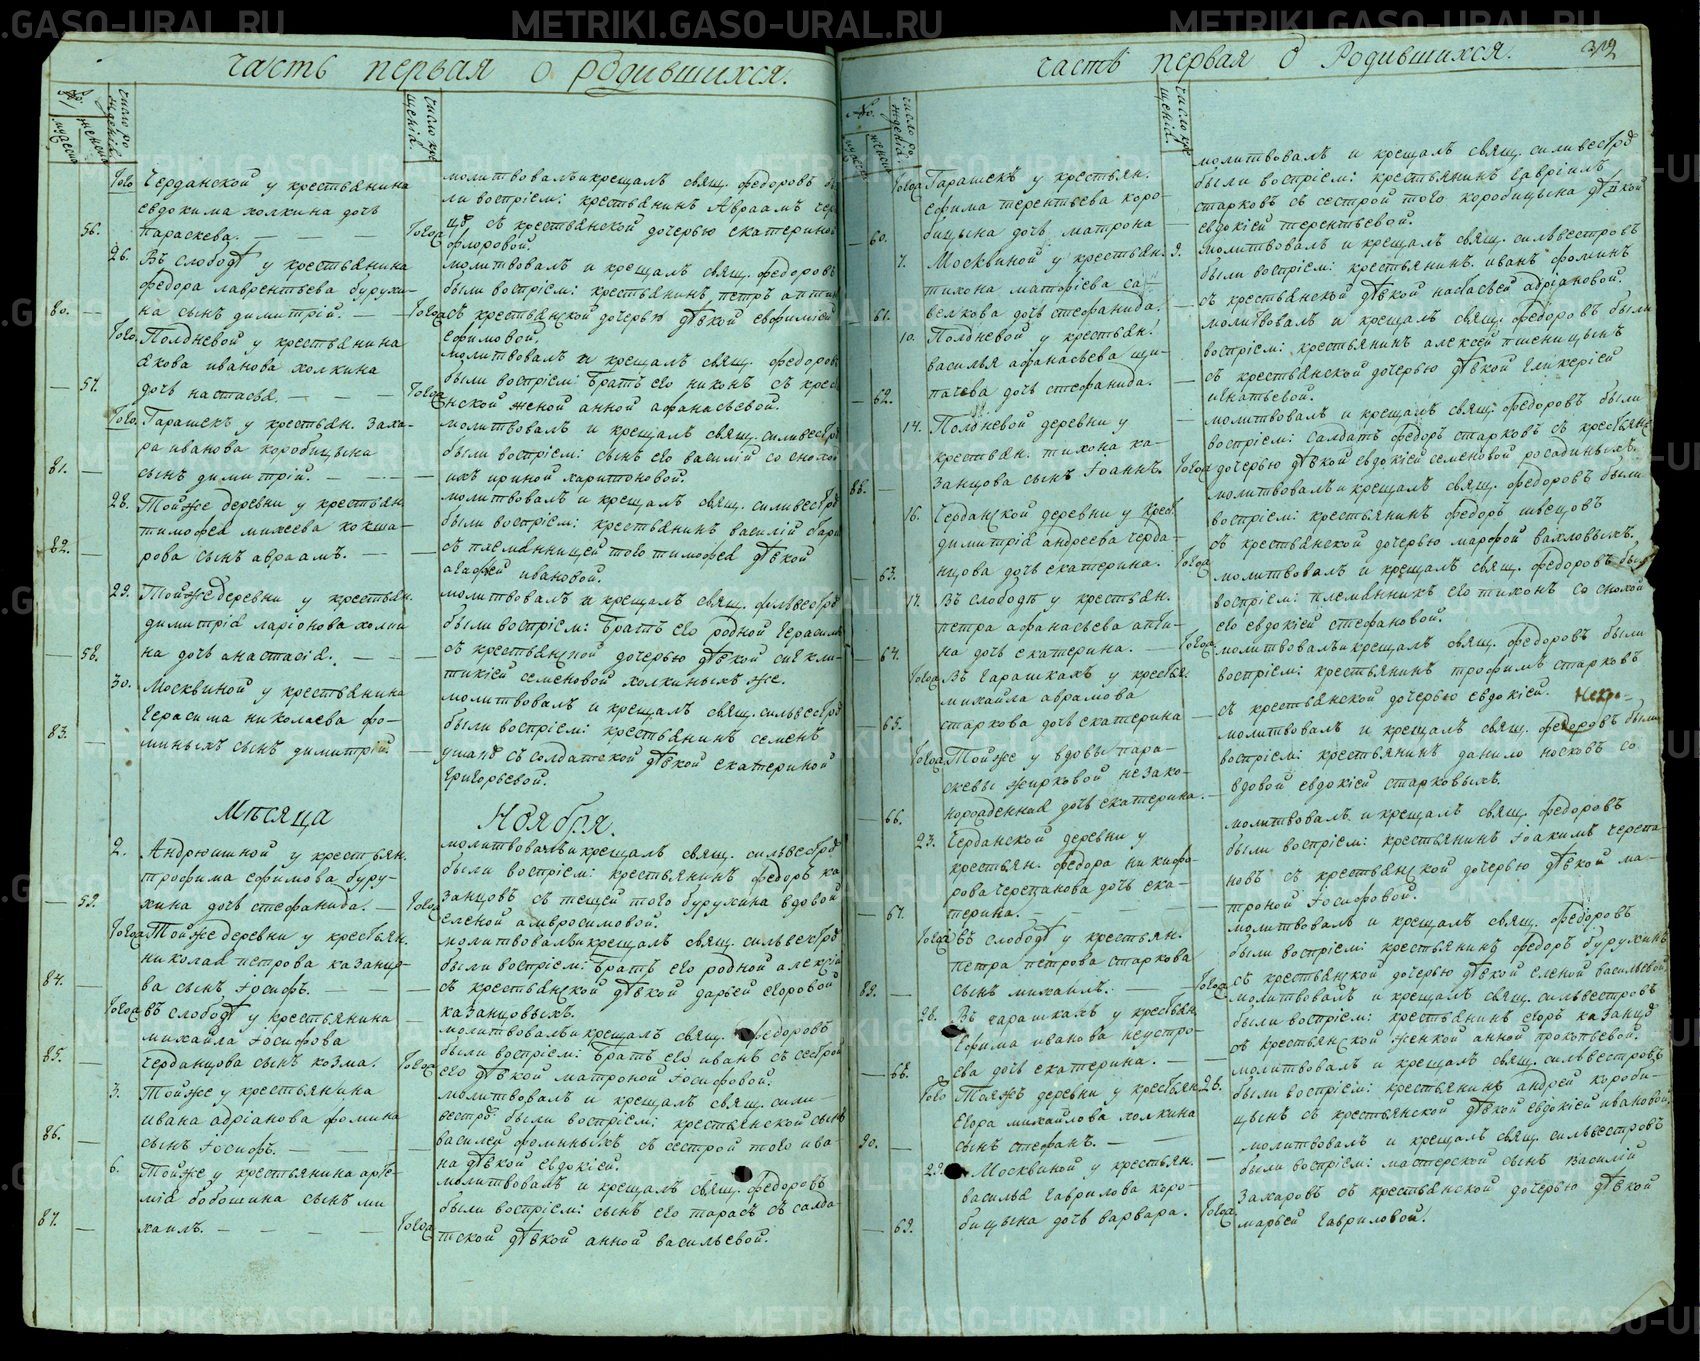 METRIKI.GASO-URAL.RU
часть первая о родившихся.
Того Черданской у крестьянина
евдокима холкина дочь
56. параскева.
молитвовалъ и крещалъ свящ. федоровъ бы
ли воспріем: крестьянинъ Авраамъ
съ крестьянской дочерью екатериной
флоровой.
26. Въ слободѣ у крестьянина
федора лаврентьева бурухи-
80. на сынъ димитрій.
молитвовалъ и крещалъ свящ. федоровъ
были воспріем: крестьянинъ петръ
съ крестьянской дочерью дѣвкой евфиміей
ефимовой.
Того. Полдневой у крестьянина
якова иванова холкина
57. дочь настасья.
молитвовалъ и крещалъ свящ. федоровъ
были воспріем: братъ его никонъ съ крес
нской женой анной афанасьевой.
Того. Гарашекъ у крестьян. заха-
ра иванова коробицына
81. сынъ димитрій.
молитвовалъ и крещалъ свящ. сильвестръ
были воспріем: сынъ его василій со снохой
ихъ ириной харитоновой.
28. Тойже деревни у крестьян.
тимофея михеева кокша-
82. рова сынъ авраамъ.
молитвовалъ и крещалъ свящ. сильвестръ
были воспріем: крестьянинъ василій
съ племянницей того тимофея дѣвкой
агафьей ивановой.
29. Тойже деревни у крестьян.
димитрія ларіонова холки
58. на дочь анастасія.
молитвовалъ и крещалъ свящ. сильвестръ
были воспріем: братъ его родной герасимъ
съ крестьянской дочерью дѣвкой
семеновой холкиныхъ же.
30. Москвиной у крестьянина
герасима николаева фо-
83. миныхъ сынъ димитрій
молитвовалъ и крещалъ свящ. сильвестръ
были воспріем: крестьянинъ семенъ
съ солдатской дѣвкой екатериной
григорьевой.
Мѣсяца Ноября.
2. Андрюшиной у крестьян.
трофима ефимова буру-
59. хина дочь стефанида.
молитвовалъ и крещалъ свящ. сильвестръ
были воспріем: крестьянинъ федоръ ка
занцовъ съ тещей того бурухина вдовой
еленой амвросимовой.
Тогоа Тойже деревни у крестьян.
николая петрова казанцо-
84. ва сынъ Іосифъ.
молитвовалъ и крещалъ свящ. сильвестръ
были воспріем: братъ его родной алексій
съ крестьянской дѣвкой дарьей егоровой
казанцовыхъ.
Тогоа въ слободѣ у крестьянина
михаила Іосифова
85. черданцова сынъ козма.
молитвовалъ и крещалъ свящ. федоровъ
были воспріем: братъ его иванъ съ сестрой
его дѣвкой матроной Іосифовой.
3. Тойже у крестьянина
ивана адріанова фомина
86. сынъ Іосифъ.
молитвовалъ и крещалъ свящ. силь-
вестръ: были воспріем: крестьянской сынъ
василей фоминыхъ съ сестрой того ива-
на дѣвкой евдокіей.
6. Тойже у крестьянина арте-
мія бобошина сынъ ми
87. хаилъ.
молитвовалъ и крещалъ свящ. федоровъ
были воспріем: сынъ его тарасъ съ салда
тской дѣвкой анной васильевой.
часть первая о Родившихся.
Тогоа Гарашекъ у крестьян.
ефима терентьева коро-
60. бицына дочь матрона
молитвовалъ и крещалъ свящ. сильвестръ
были воспріем: крестьянинъ гавріилъ
старковъ съ сестрой того коробицына дѣвкой
евдокіей терентьевой.
7. Москвиной у крестьян. 9.
тихона матфіева са-
61. велкова дочь стефанида.
молитвовалъ и крещалъ свящ. сильвестровъ
были воспріем: крестьянинъ иванъ фоминъ
съ крестьянской дѣвкой настасьей адріановой.
10. Полдневой у крестьян.
василья афанасьева щи-
62. пачева дочь стефанида.
молитвовалъ и крещалъ свящ. федоровъ были
воспріем: крестьянинъ алексей пшеницынъ
съ крестьянской дочерью дѣвкой гликеріей
игнатьевой.
14. Полдневой деревни у
крестьян. тихона ка-
88. занцова сынъ Іоаннъ.
молитвовалъ и крещалъ свящ. федоровъ были
воспріем: салдатъ федоръ старковъ съ крестьянс
дочерью дѣвкой евдокіей семеновой
16. Черданской деревни у крест.
димитрія андреева черда-
63. нцова дочь екатерина.
молитвовалъ и крещалъ свящ. федоровъ были
воспріем: крестьянинъ федоръ швецовъ
съ крестьянской дочерью марфой вахловыхъ.
17. Въ слободѣ у крестьян.
петра афанасьева
64. на дочь екатерина.
молитвовалъ и крещалъ свящ. федоровъ был
воспріем: племянникъ его тихонъ со снохой
его евдокіей стефановой.
Тогоа Въ Гарашкахъ у крестьян.
михайла аврамова
65. старкова дочь екатерина
молитвовалъ и крещалъ свящ. федоровъ были
воспріем: крестьянинъ трофимъ старковъ
съ крестьянской дочерью евдокіей.
Тогоа Тойже у вдовы пара-
скевы жирковой незако-
66. норожденная дочь екатерина.
молитвовалъ и крещалъ свящ. федоровъ были
воспріем: крестьянинъ данило носковъ со
вдовой евдокіей старковыхъ.
23. Черданской деревни у
крестьян. федора никифо-
рова черепанова дочь ека-
67. терина.
молитвовалъ и крещалъ свящ. федоровъ
были воспріем: крестьянинъ Іоакимъ черепа
новъ съ крестьянской дочерью дѣвкой ма-
троной Іосифовой.
Тогоа въ слободѣ у крестьян.
петра петрова старкова
89. сынъ михаилъ.
молитвовалъ и крещалъ свящ. федоровъ
были воспріем: крестьянинъ федоръ бурухинъ
съ крестьянской дочерью дѣвкой еленой васильевой
26. Въ гарашкахъ у крестьян.
ефима иванова неустро-
68. ева дочь екатерина.
молитвовалъ и крещалъ свящ. сильвестровъ
были воспріем: крестьянинъ егоръ казанцо
съ крестьянской женкой анной прокопьевой.
Того Тояжъ деревни у крестьян. 28.
егора михайлова холкина
90. сынъ стефанъ.
молитвовалъ и крещалъ свящ. сильвестровъ
были воспріем: крестьянинъ андрей короби-
цынъ съ крестьянской дѣвкой евдокіей ивановой
29. Москвиной у крестьян.
василья гаврилова коро-
69. бицына дочь варвара.
молитвовалъ и крещалъ свящ. сильвестровъ
были воспріем: мастерской сынъ василій
захаровъ съ крестьянской дочерью дѣвкой
марьей гавриловой.